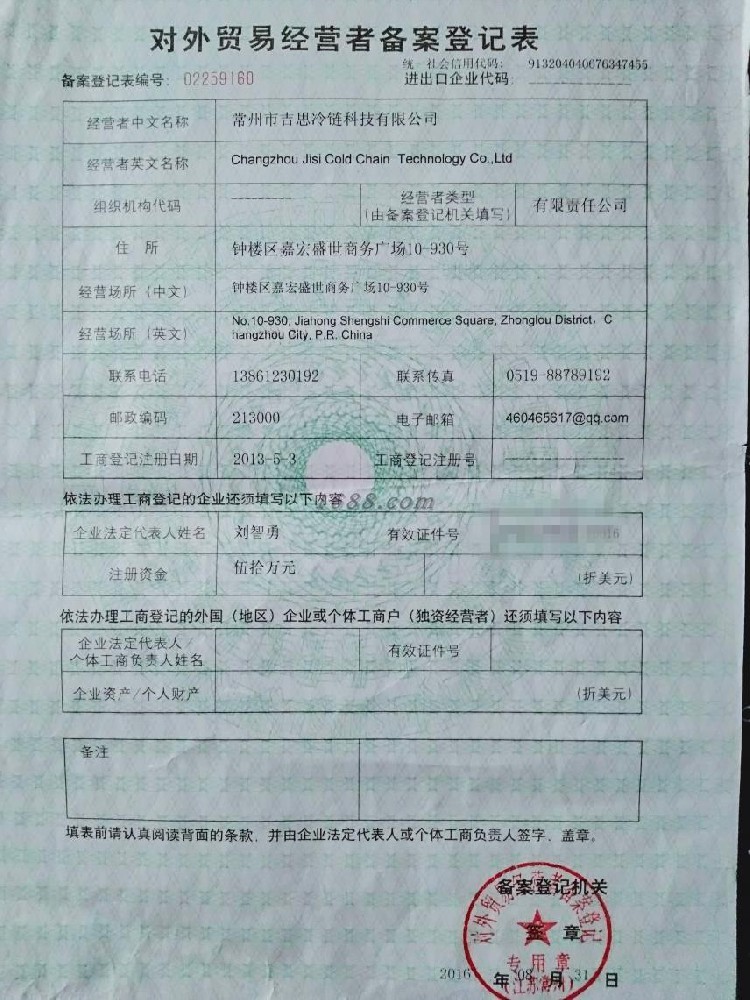 对外贸易经营者备案登记表
统一社会信用代码: 913204040676347455
备案登记表编号: 02259160 进出口企业代码:
经营者中文名称 常州市吉思冷链科技有限公司
经营者英文名称 Changzhou Jisi Cold Chain Technology Co.,Ltd
组织机构代码 经营者类型 有限责任公司
(由备案登记机关填写)
住 所 钟楼区嘉宏盛世商务广场10-930号
经营场所(中文) 钟楼区嘉宏盛世商务广场10-930号
经营场所(英文) No.10-930, Jiahong Shengshi Commerce Square, Zhonglou District, C
hangzhou City, P.R. China
联系电话 13861230192 联系传真 0519-88789192
邮政编码 213000 电子邮箱 460465617@qq.com
工商登记注册日期 2013-5-3 工商登记注册号
依法办理工商登记的企业还须填写以下内容
1688.com
企业法定代表人姓名 刘智勇 有效证件号
注册资金 伍拾万元 (折美元)
依法办理工商登记的外国(地区)企业或个体工商户(独资经营者)还须填写以下内容
企业法定代表人/ 有效证件号
个体工商负责人姓名
企业资产/个人财产 (折美元)
备注
填表前请认真阅读背面的条款,并由企业法定代表人或个体工商负责人签字、盖章。
备案登记机关
对外贸易经营者备案登记
签 章
专用章
2016 年 08 月 31 日
(江苏常州)